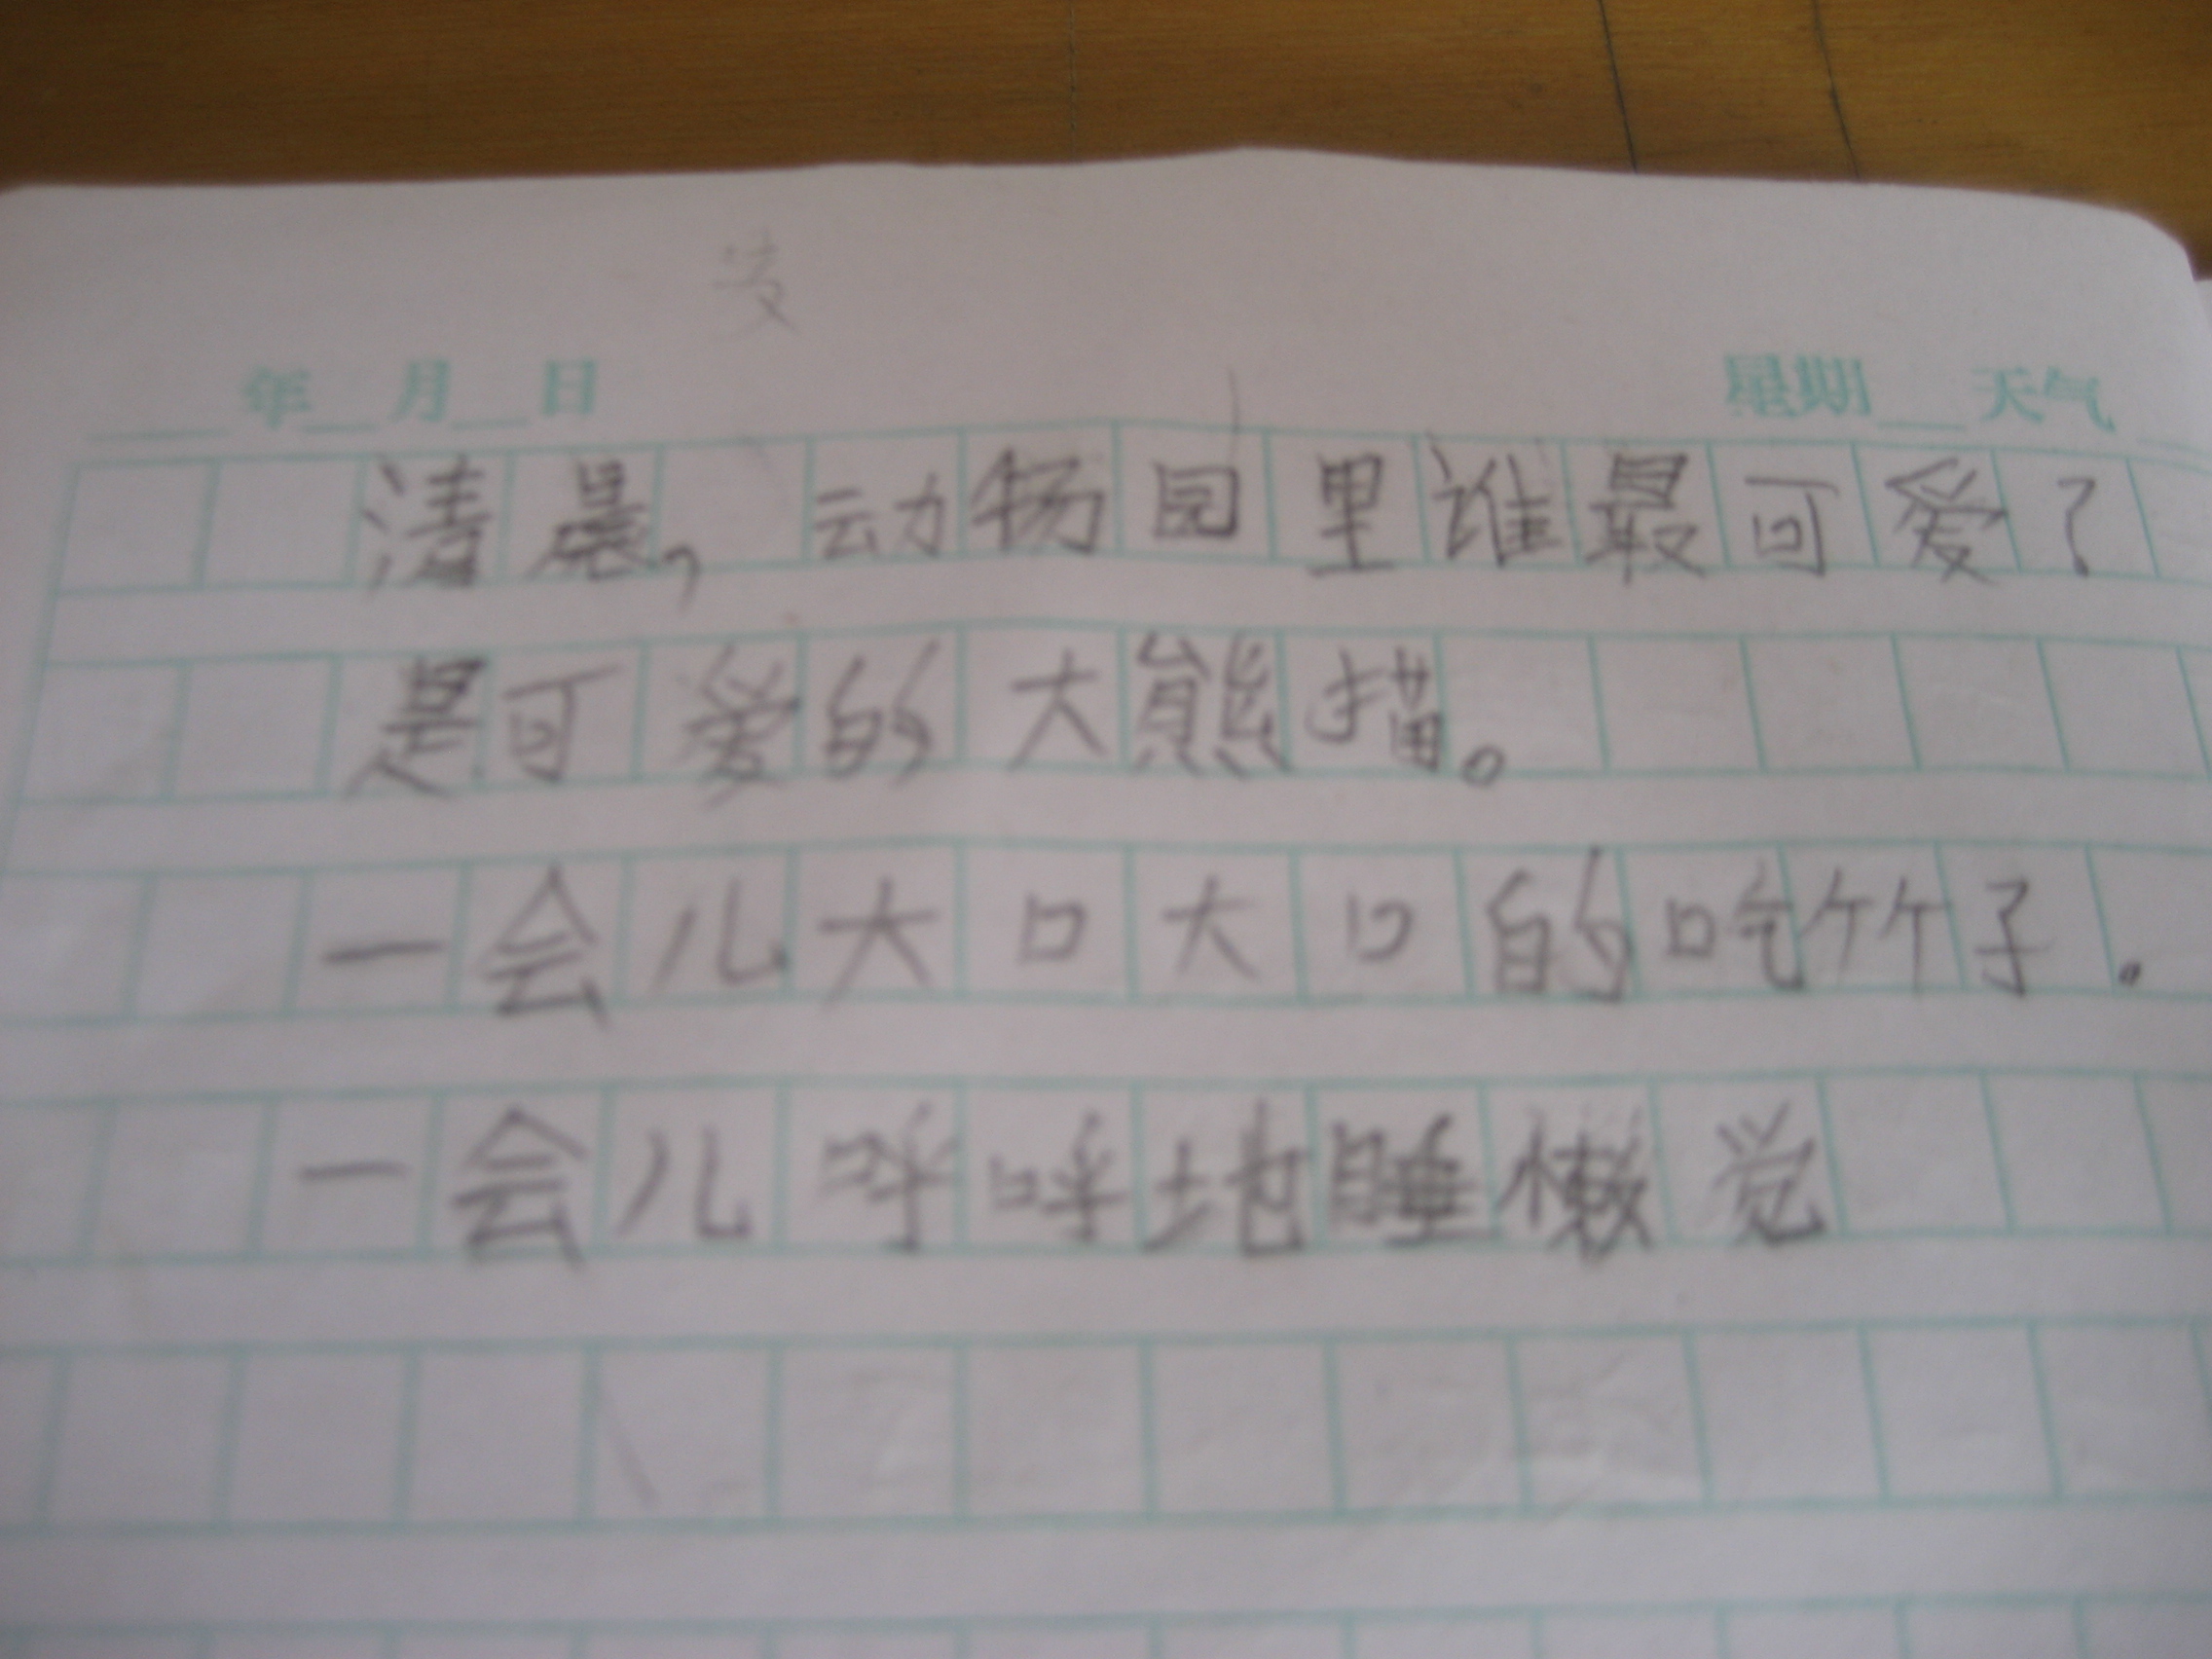 年 月 日 星期 天气
清晨，动物园里谁最可爱了
是可爱的大熊猫。
一会儿大口大口的吃竹子。
一会儿呼呼地睡懒觉